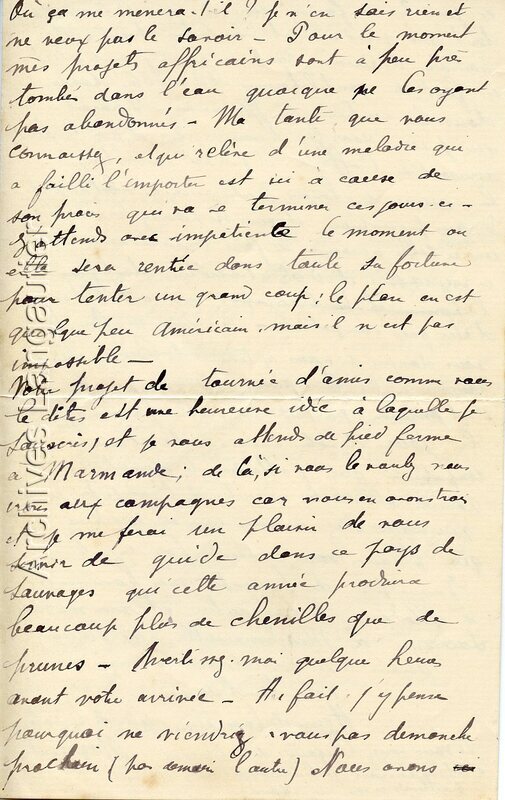 Où ça me mènera-t-il ? Je n'en sais rien et
ne veux pas le savoir - Pour le moment
mes projets africains sont à peu près
tombés dans l'eau quoique ne les ayant
pas abandonnés - Ma tante que vous
connaissez, et qui relève d'une maladie qui
a failli l'emporter est ici à cause de
son procès qui va se terminer ces jours-ci -
J'attends avec impatience le moment où
elle sera rentrée dans toute sa fortune
pour tenter un grand coup ; le plan en est
quelque peu Américain mais il n'est pas
impossible -
Votre projet de tournée d'amis comme vous
le dites est une heureuse idée à laquelle je
souscris, et je vous attends de pied ferme
à Marmande ; de là, si vous le voulez nous
irons aux campagnes car nous en avons trois
et je me ferai un plaisir de vous
servir de guide dans ce pays de
sauvages qui cette année produira
beaucoup plus de chenilles que de
prunes - Avertissez-moi quelque heures
avant votre arrivée - Au fait j'y pense
pourquoi ne viendriez-vous pas dimanche
prochain (pas demain l'autre) Nous avons
Archives Pangautier